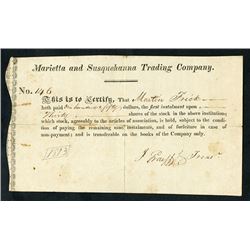 Marietta and Susquehanna Trading Company.
No. 146
This is to Certify, That Martin Frick
hath paid one hundred fifty dollars, the first instalment upon
Thirty shares of the stock in the above institution;
which stock, agreeably to the articles of association, is held, subject to the condi-
tion of paying the remaining instalments, and of forfeiture in case of
non payment; and is transferable on the books of the Company only.
1813
J Treas